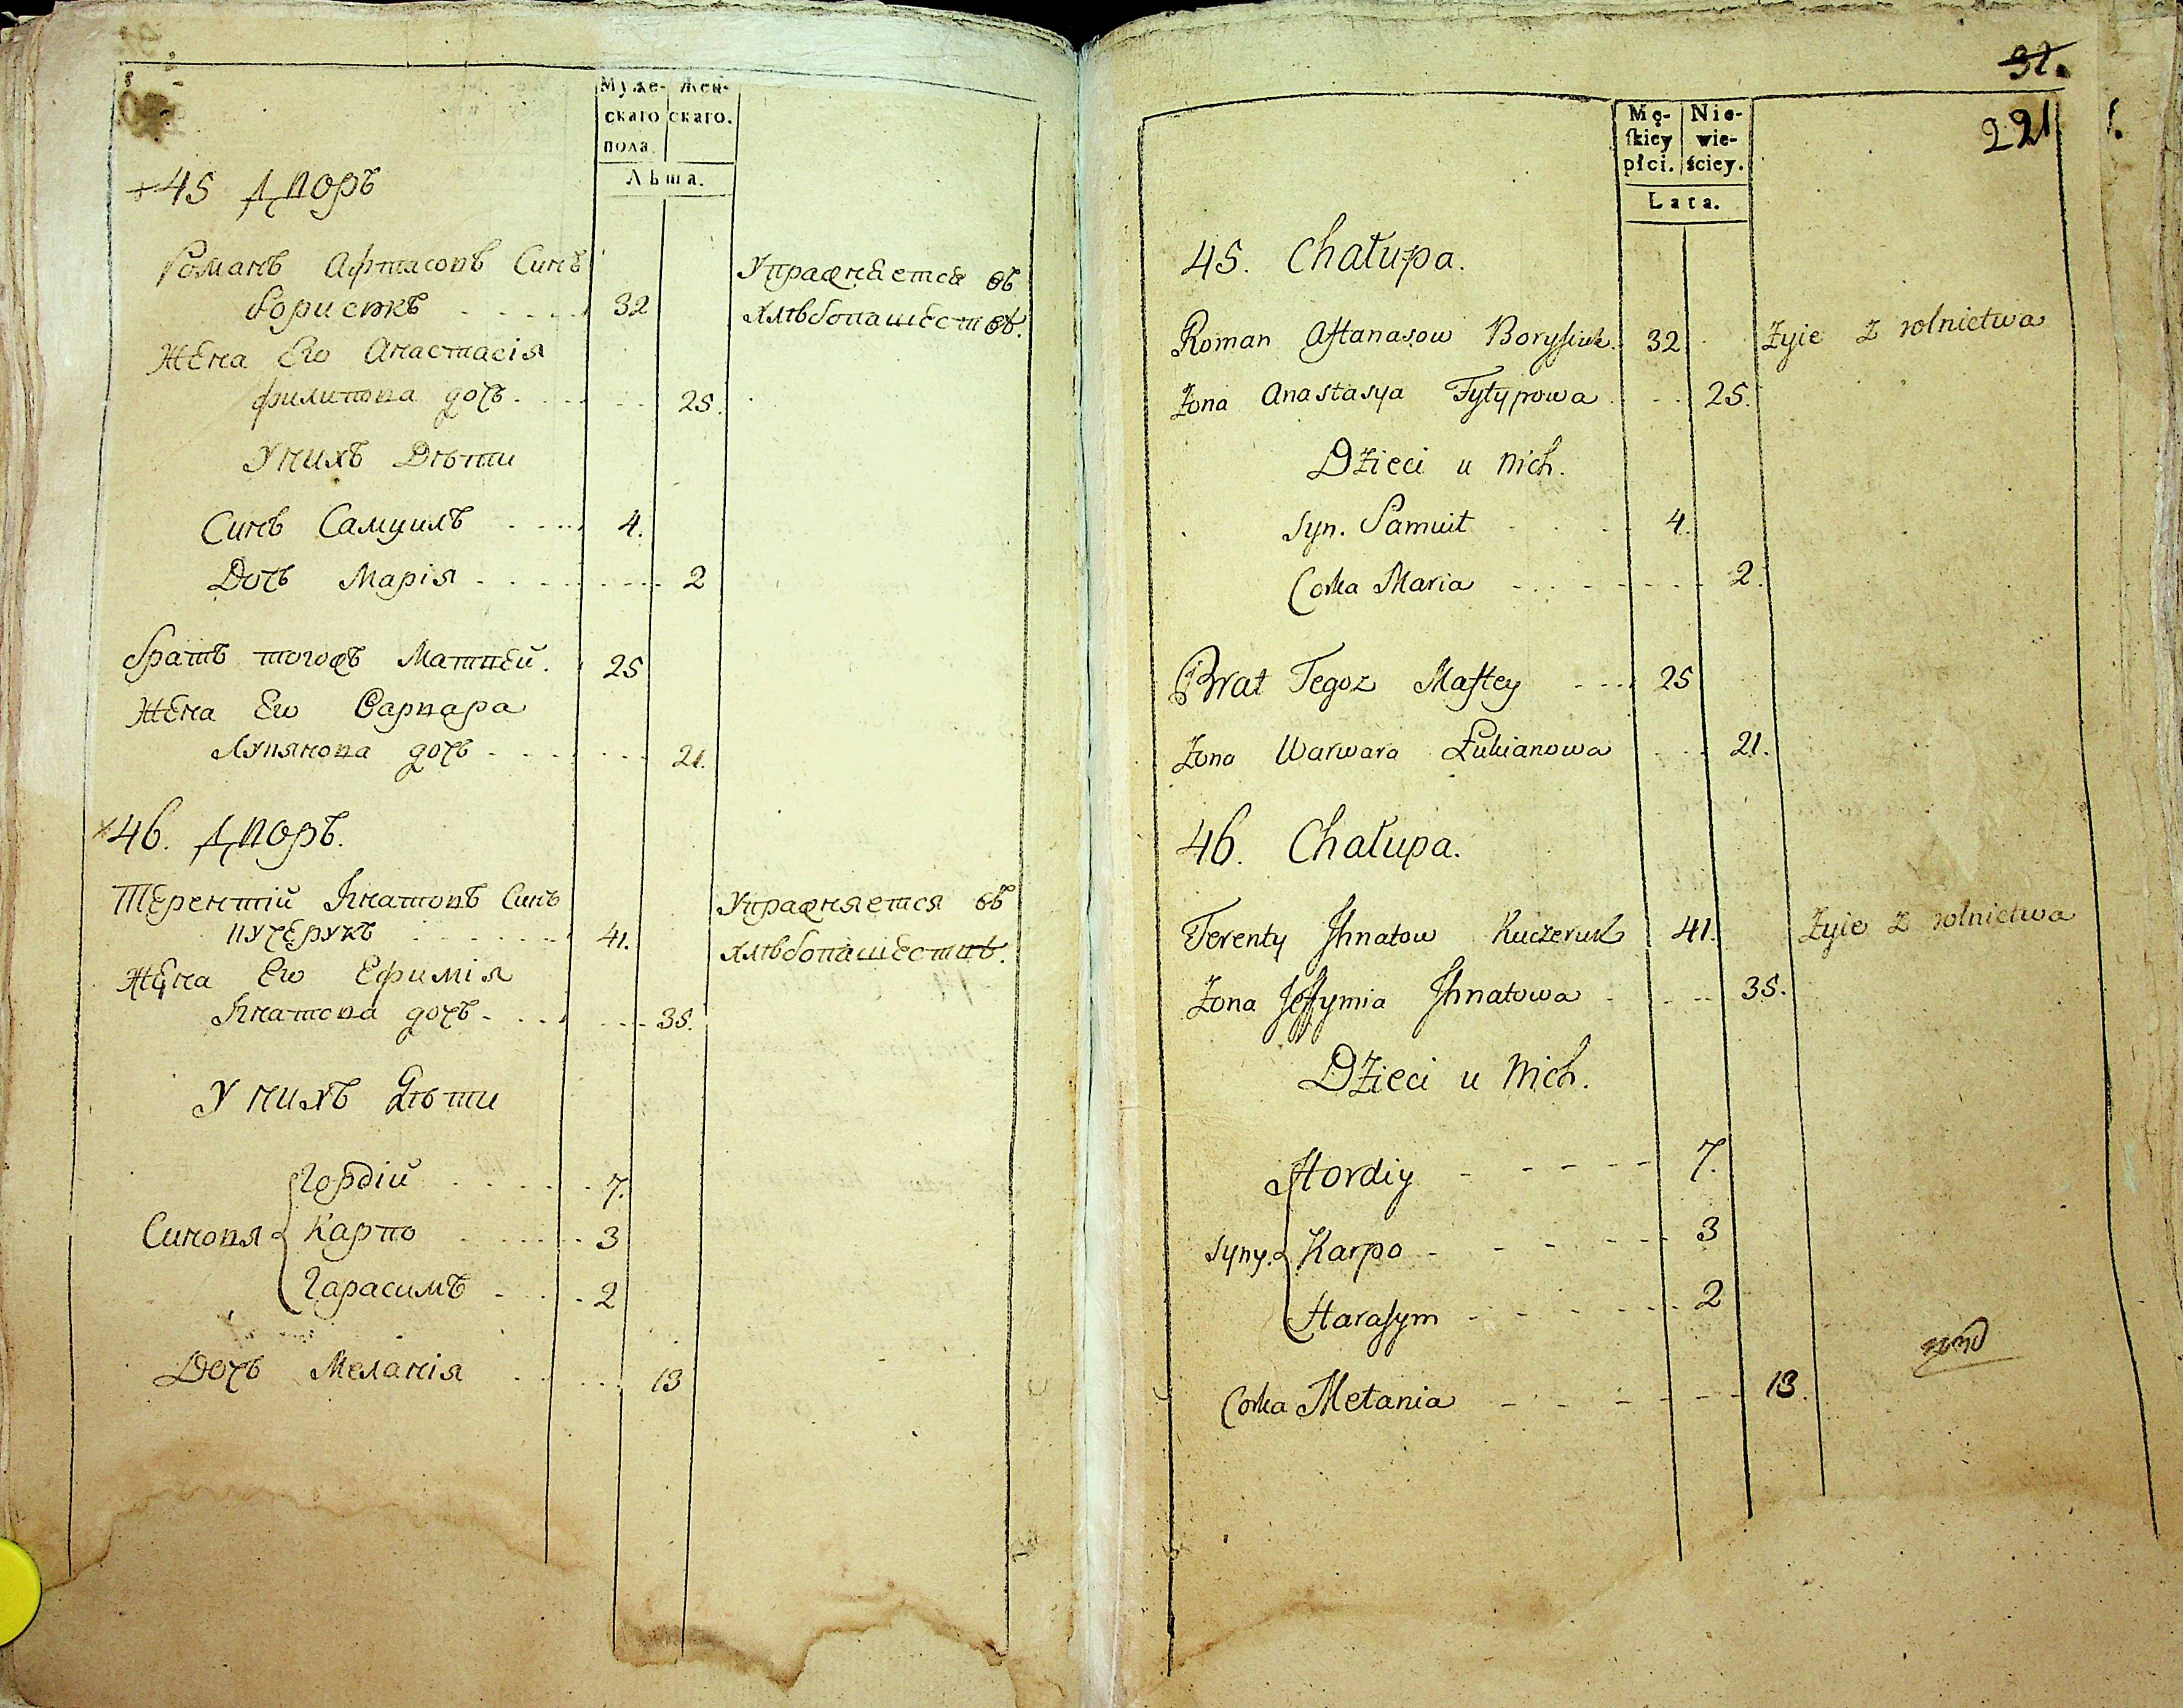 Муже-
скаго
пола.
Жен-
скаго.
Лѣта.
45 Дворъ
Романъ Афтасовъ Синъ
Борисюкъ 32
Упражняется въ
хлѣбопашествѣ.
Жена Его Анастасія
филипова дочъ 25.
У нихъ Дѣти
Синъ Самуилъ 4.
Дочъ Марія 2
Братъ тогожъ Матвей. 25
Жена Его Варвара
Лукянова дочъ 21.
46. Дворъ.
Терентій Игнатовъ Синъ
Кучерукъ 41.
Упражняется въ
хлѣбопашествѣ.
Жена Его Ефимія
Игнатова дочъ 35.
У нихъ Дѣти
Гордій 7.
Синовя Карпо 3
Гарасимъ 2
Дочъ Меланія 13
32.
221
Mę-
skiey
płci.
Nie-
wie-
ściey.
Lata.
45. Chałupa.
Roman Aftanasow Borysiuk. 32 Żyie z rolnictwa
Żona Anastasya Fyłypowa 25.
Dzieci u nich.
Syn. Samuił 4.
Corka Maria 2.
Brat Tegoż Maftey 25
Żona Warwara Łukianowa 21.
46. Chałupa.
Terenty Ihnatow Kuczeruk 41. Żyie z rolnictwa
Żona Jeffymia Ihnatowa 35.
Dzieci u Nich.
Hordiy 7.
Syny. Karpo 3
Harasym 2
Corka Metania 13.